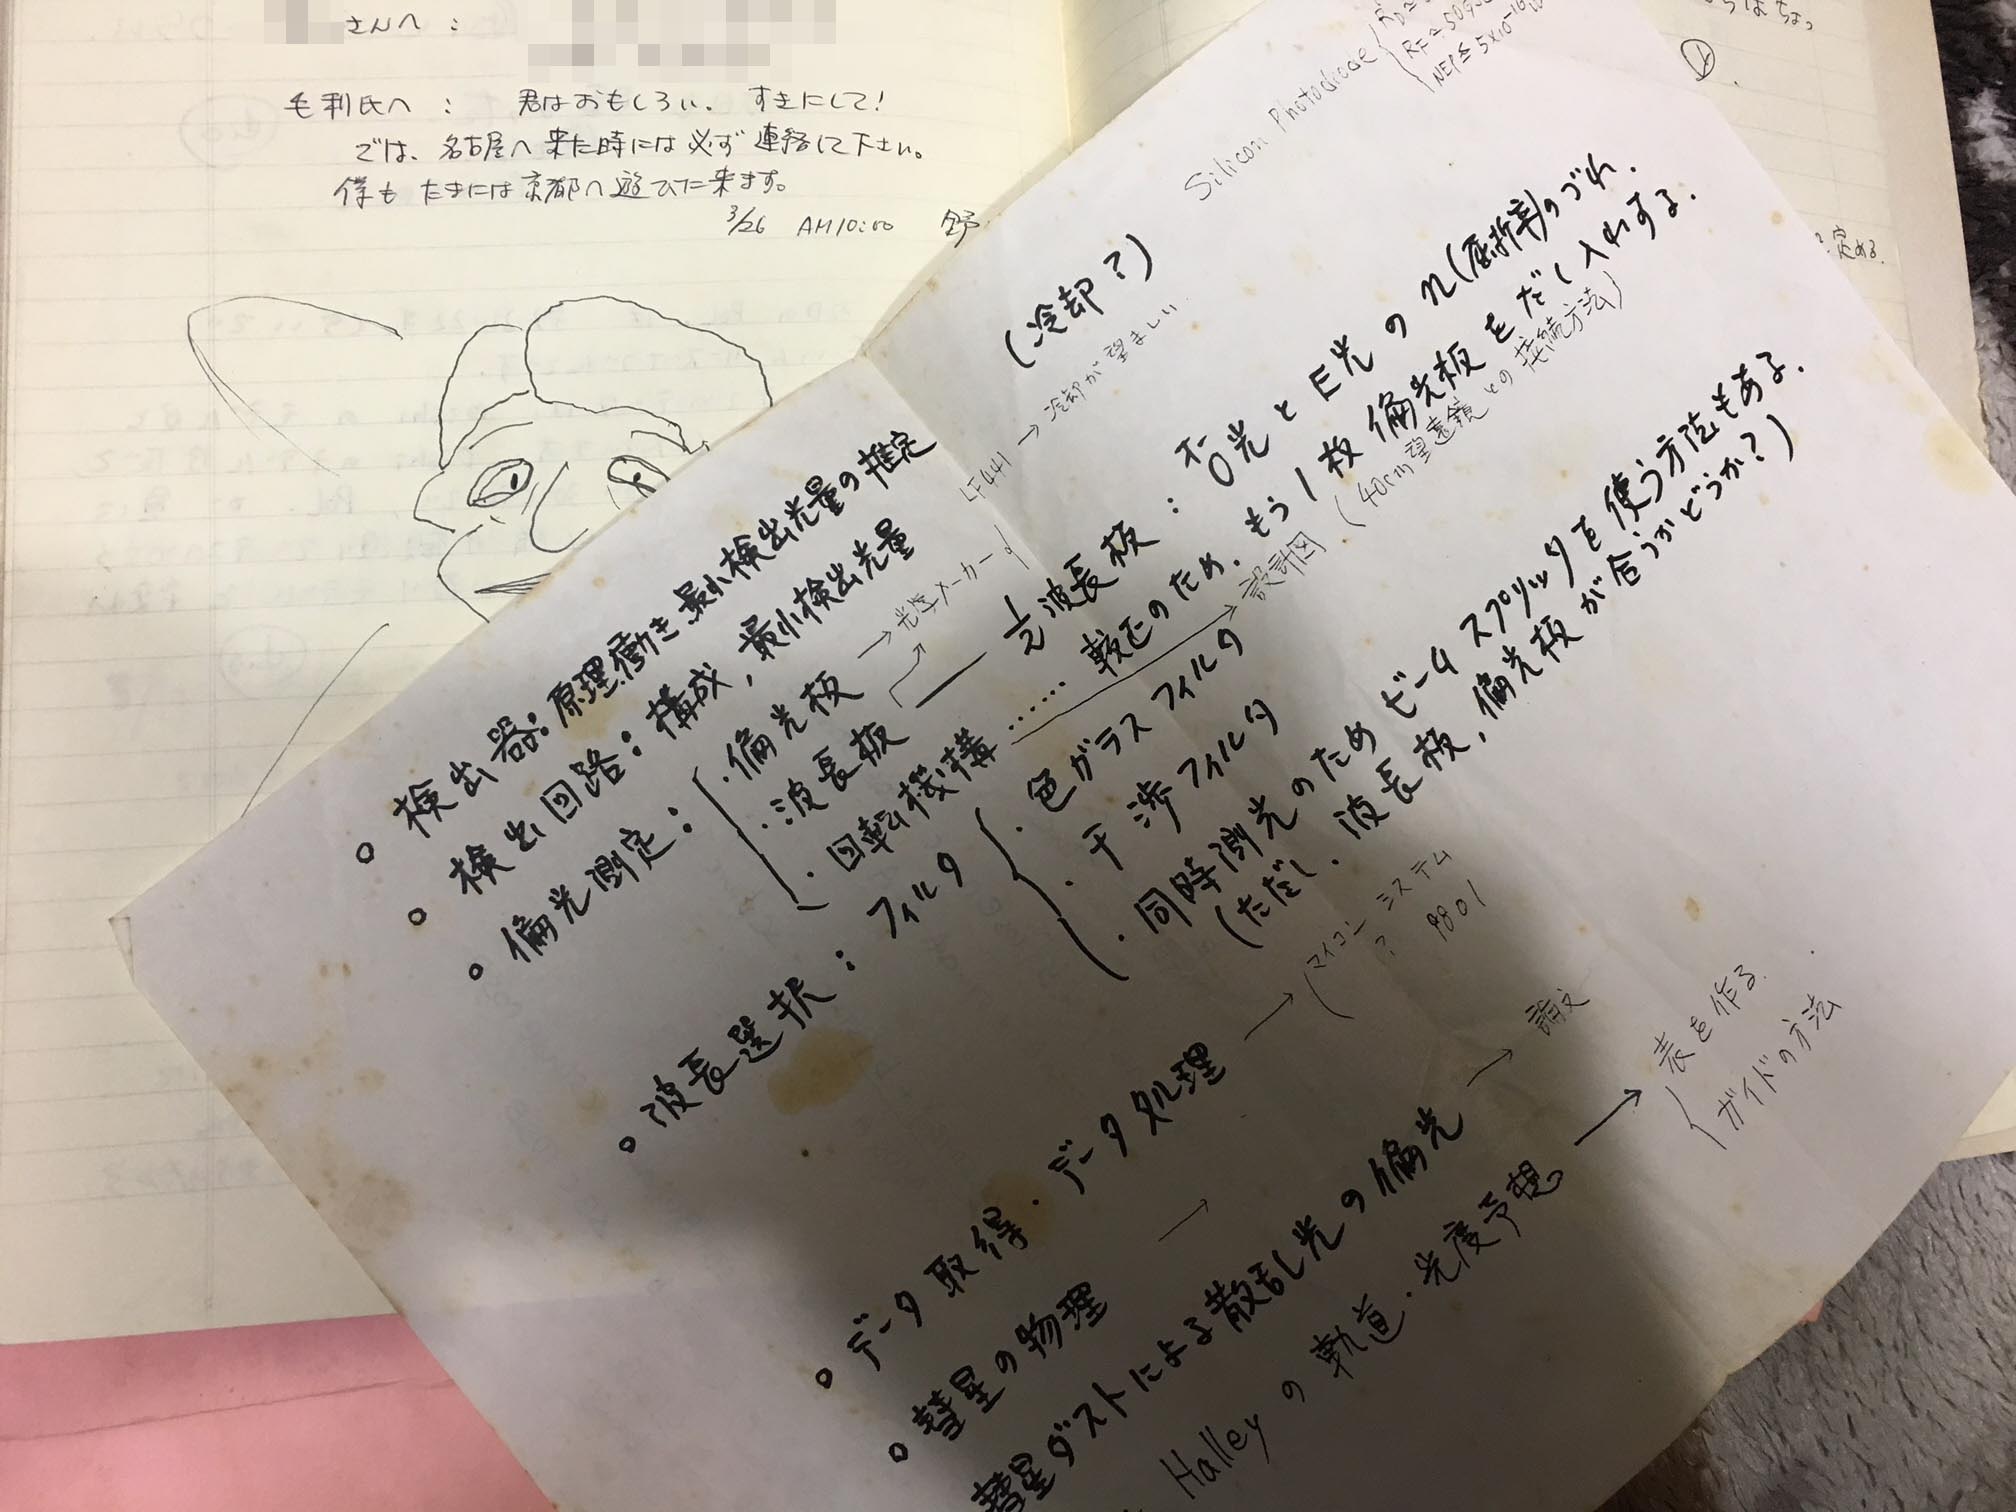 さんへ：
毛利氏へ： 君はおもしろい. すきにして!
では、名古屋へ来た時には必ず連絡して下さい。
僕もたまには京都へ遊びに来ます。
3/26 AM10:00 野
Silicon Photodiode
NEP ≤ 5×10
(冷却?)
LF441 → 冷却が望ましい
○ 検出器: 原理,働き 最小検出光量の推定
○ 検出回路: 構成, 最小検出光量
○ 偏光測定:
・偏光板 → 光学メーカー
・波長板 — 1/2波長板: O光とE光のn(屈折率)のづれ.
・回転機構 …… 較正のため, もう1枚偏光板をだし入れする.
→ 設計図 (40cm望遠鏡との接続方法)
○ 波長選択: フィルタ
・色ガラスフィルタ
・干渉フィルタ
・同時測光のためビームスプリッタを使う方法もある.
(ただし, 波長板, 偏光板が合うかどうか?)
○ データ取得・データ処理 → (マイコンシステム
? 9801
○ 彗星の物理 →
彗星ダストによる散乱光の偏光 → 論文
Halleyの軌道・光度予想 → 表を作る.
ガイドの方法